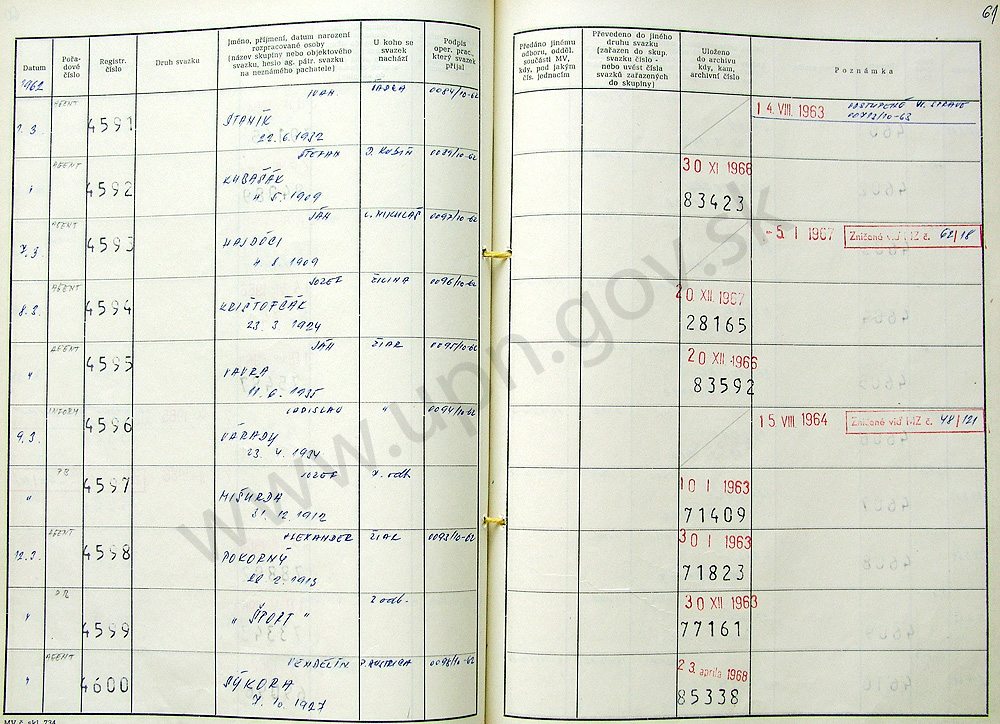 61
Datum
Pořa-
dové
číslo
Registr.
číslo
Druh svazku
Jméno, příjmení, datum narození
rozpracované osoby
(název skupiny nebo objektového
svazku, heslo ag. pátr. svazku
na neznámého pachatele)
U koho se
svazek
nachází
Podpis
oper. prac.,
který svazek
přijal
Předáno jinému
odboru, odděl.
součásti MV,
kdy, pod jakým
čís. jednacím
Převedeno do jiného
druhu svazku
(zařazen do skup.
svazku číslo -
nebo uvést čísla
svazků zařazených
do skupiny)
Uloženo
do archivu
kdy, kam,
archivní číslo
Poznámka
1962
AGENT
4591
STANÍK
22.6.1932
0084/10-62
14. VIII. 1963
AGENT
4592
ŠTEFAN
KUBAŠÁK
0089/10-62
30 XI 1966
83423
7.3.
AGENT
4593
JÁN
4 8 1909
L. MIKULÁŠ
0097/10-62
-5. I 1967
Zničené viď MZ č. 62/18
8.3.
AGENT
4594
JOZEF
KRIŠTOFČÁK
23. 3. 1924
ŽILINA
0096/10-62
20. XII. 1967
28165
"
AGENT
4595
JÁN
VAVRA
11. 6. 1935
ŽIAR
0095/10-62
20 XII 1966
83592
9.3.
INFORM
4596
LADISLAV
VÁRADY
23. V. 1934
"
0094/10-62
15 VIII. 1964
Zničené viď MZ č. 48/121
"
PR
4597
JOZEF
MIŠURDA
31. 12. 1912
10 I 1963
71409
12.3.
AGENT
4598
ALEXANDER
POKORNÝ
ŽIAR
0093/10-62
30 I 1963
71823
"
PR
4599
" ŠPORT "
2 odb.
30 XII 1963
77161
"
AGENT
4600
VENDELÍN
SÝKORA
7. 10. 1927
P. BYSTRICA
0098/10-62
23. apríla 1968
85338
MV č. skl. 734
www.upn.gov.sk